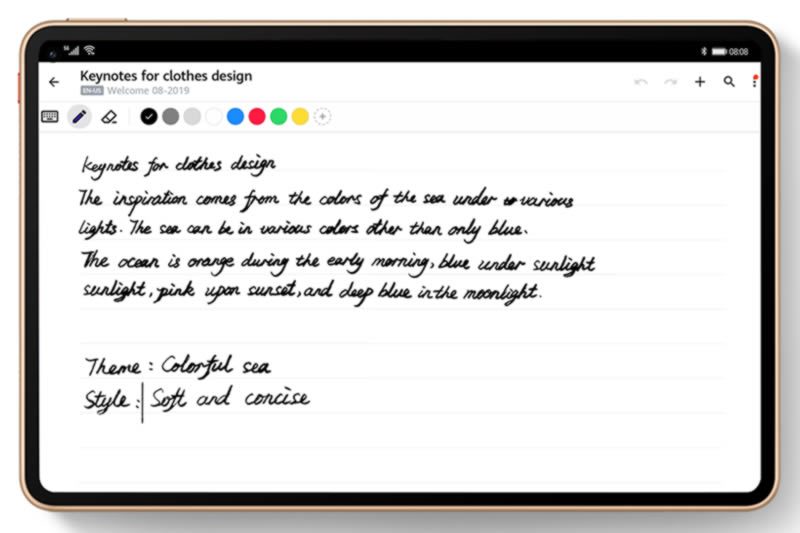 08:08
Keynotes for clothes design
EN-US Welcome 08-2019
Keynotes for clothes design
The inspiration comes from the colors of the sea under various
lights. The sea can be in various colors other than only blue.
The ocean is orange during the early morning, blue under sunlight
sunlight, pink upon sunset, and deep blue in the moonlight.
Theme : Colorful sea
Style : Soft and concise